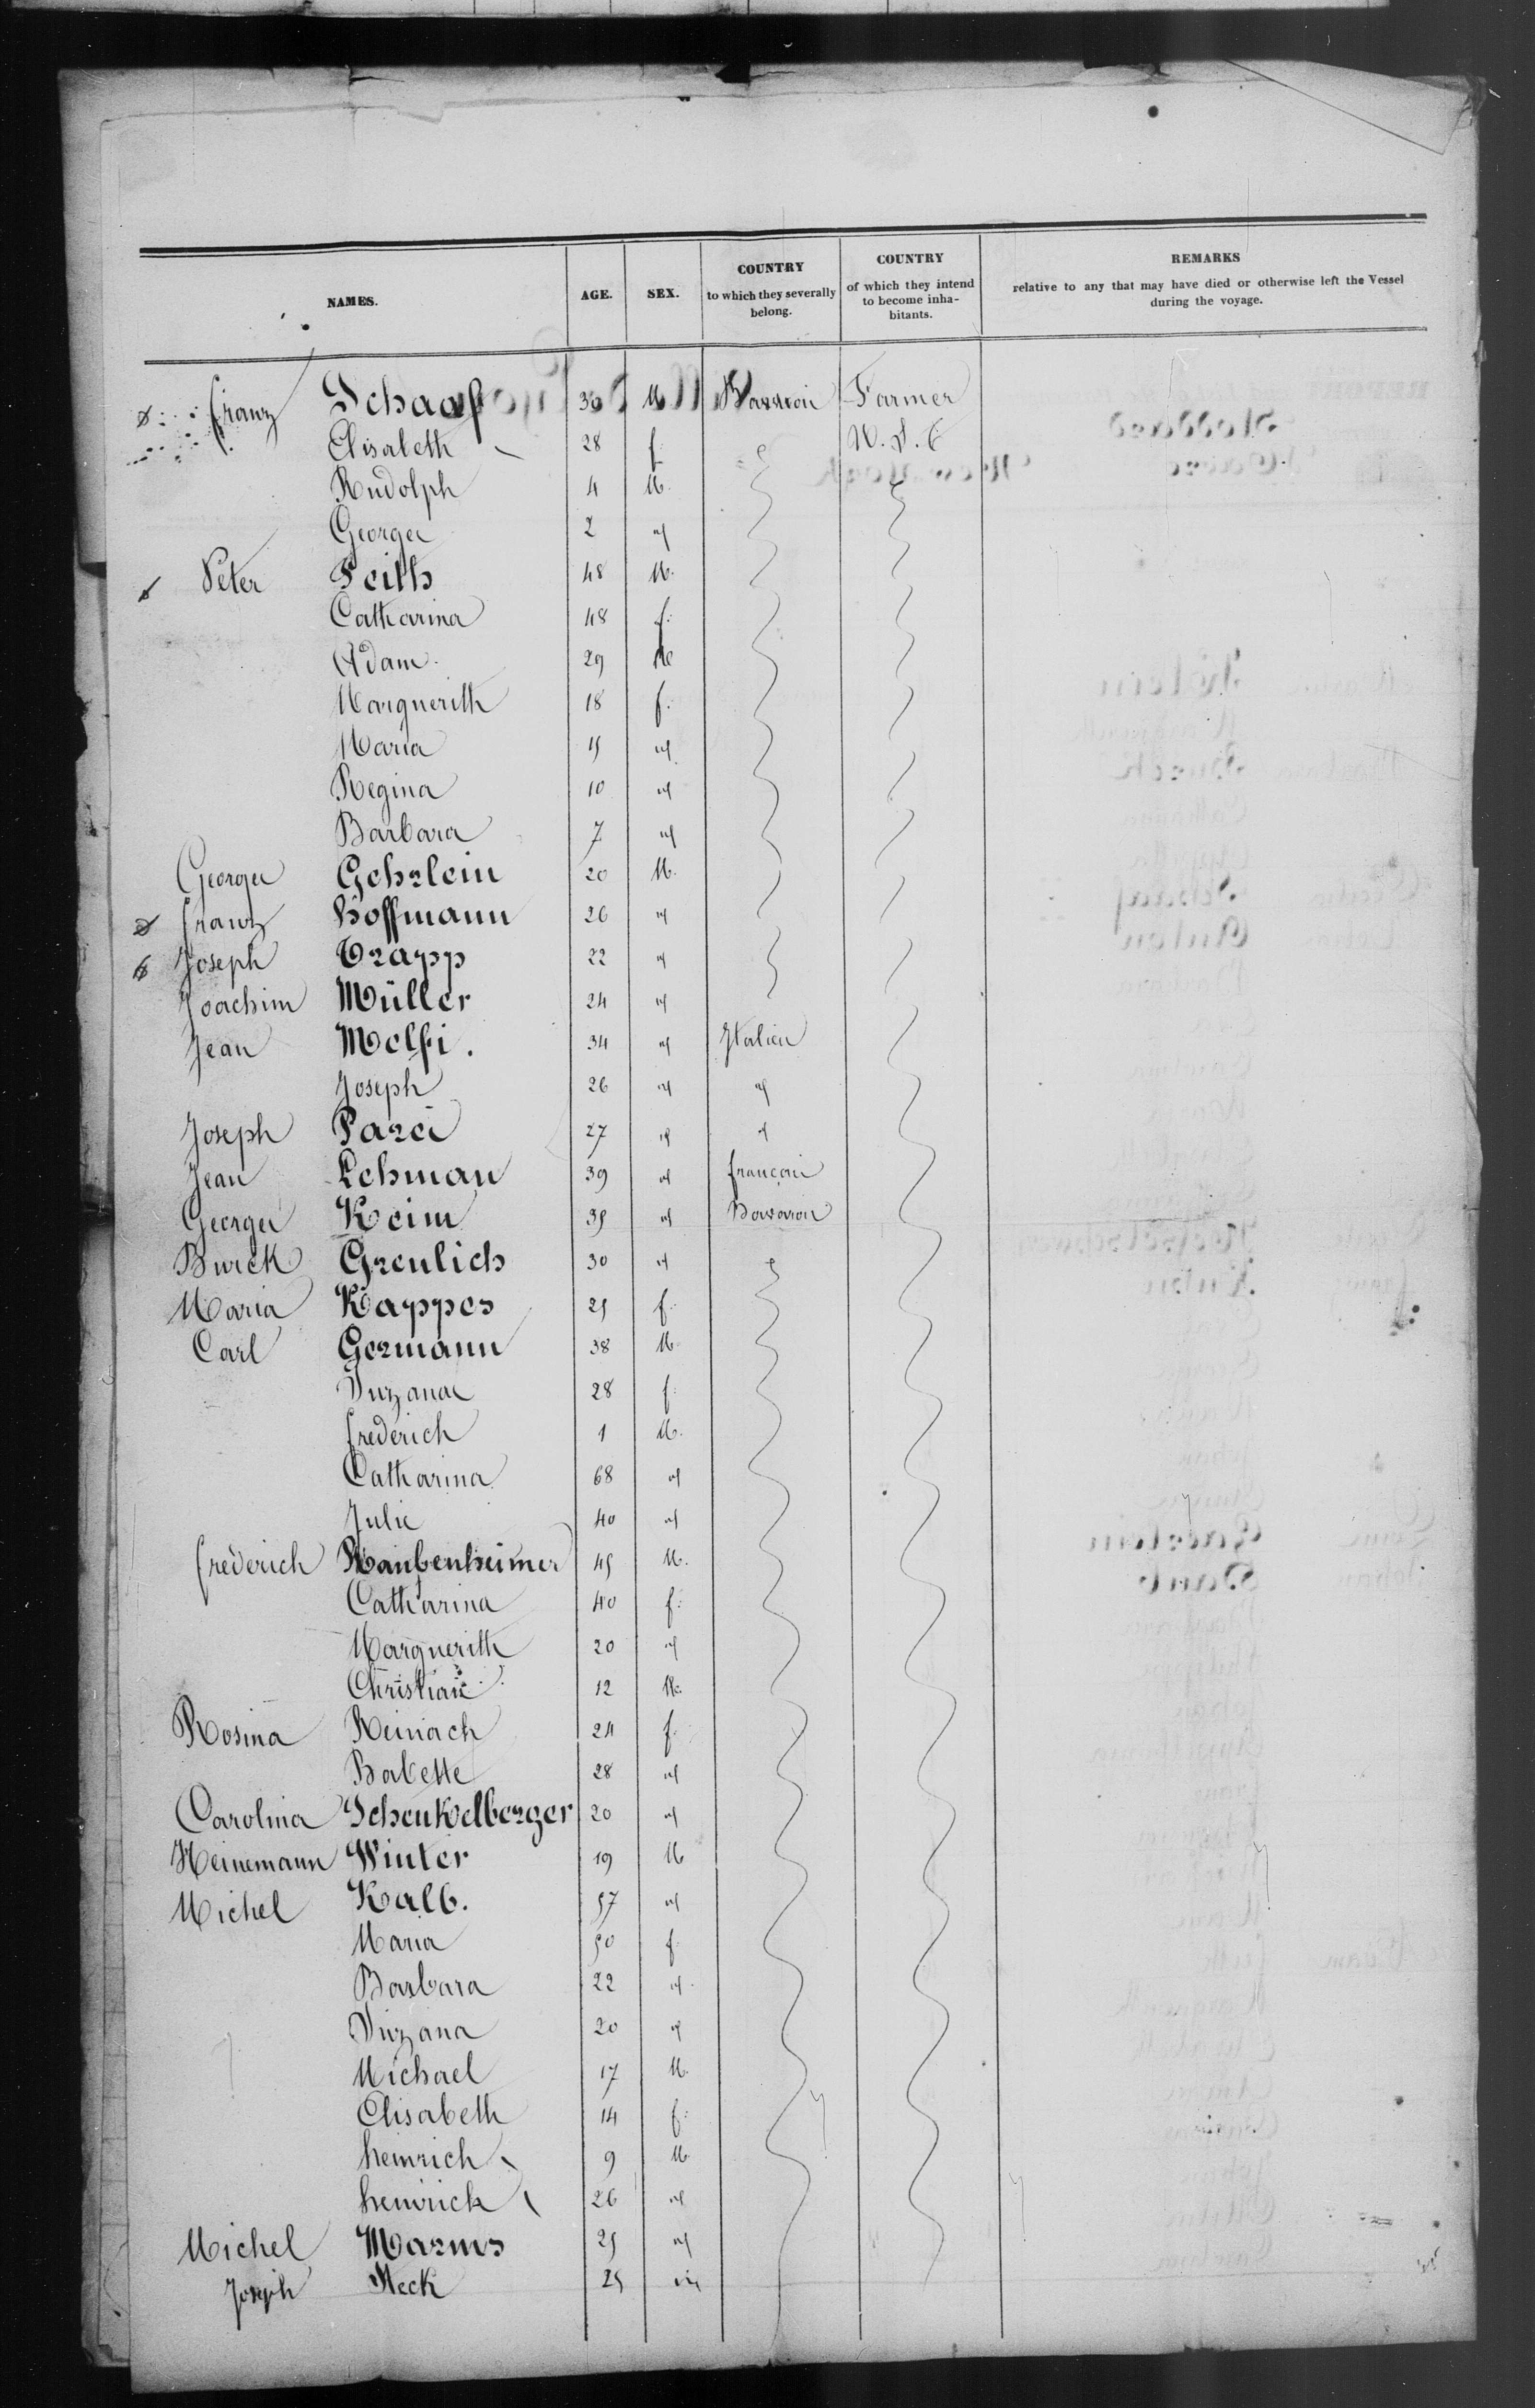 NAMES. AGE. SEX. COUNTRY to which they severally belong. COUNTRY of which they intend to become inha-bitants. REMARKS relative to any that may have died or otherwise left the Vessel during the voyage.
Franz Schaaf 36 M Farmer
Elisabeth 28 f. U. S. C
Rudolph 4 M.
George 2 "
Peter Feith 48 M.
Catharina 48 f.
Adam 29 M
Marguerith 18 f.
Maria 15 "
Regina 10 "
Barbara 7 "
George Gehrlein 20 M.
Franz Hoffmann 26 "
Joseph Trapp 22 "
Joachim Müller 24 "
Jean Melfi. 34 " Italien
Joseph 26 " "
Joseph Parci 27 " "
Jean Lehman 39 " francois
George Keim 35 " Bavaroi
Burck Greulich 30 "
Maria Kappes 25 f.
Carl Germann 38 M
Suzana 28 f.
Frederich 1 M.
Catharina 68 "
Julie 40 "
Frederich Raubenheimer 45 M.
Catharina 40 f.
Marguerith 20 "
Christian 12 M.
Rosina Reinach 24 f.
Babette 28 "
Carolina Schenkelberger 20 "
Heinemann Winter 19 M
Michel Kalb. 57 "
Maria 50 f
Barbara 22 "
Suzana 20 "
Michael 17 M.
Elisabeth 14 f.
Heinrich 9 M
Heinrich 26 "
Michel 25 "
Joseph Steck 25 "